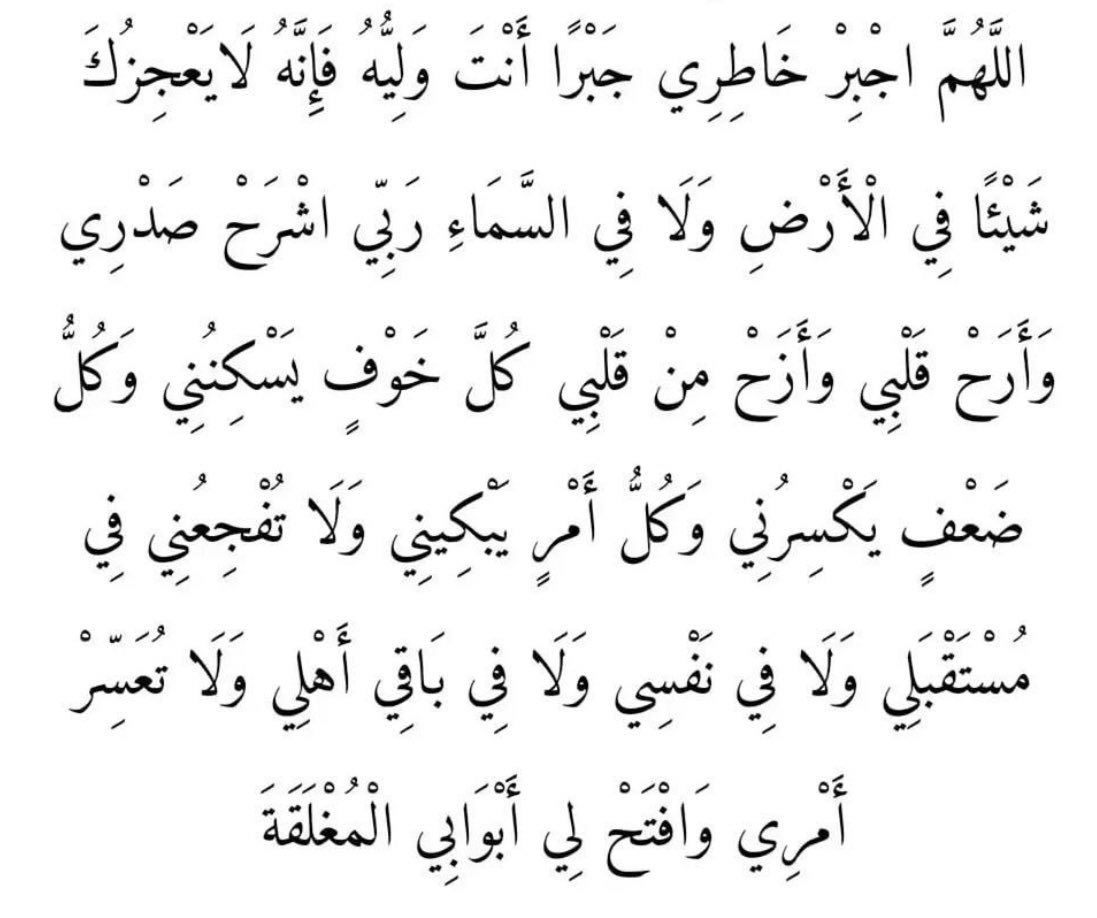 اللَّهُمَّ اجْبِرْ خَاطِرِي جَبْرًا أَنْتَ وَلِيُّهُ فَإِنَّهُ لَايَعْجِزُكَ
شَيْئًا فِي الْأَرْضِ وَلَا فِي السَّمَاءِ رَبِّي اشْرَحْ صَدْرِي
وَأَرَحْ قَلْبِي وَأَزَحْ مِنْ قَلْبِي كُلَّ خَوْفٍ يَسْكِنُنِي وَكُلُّ
ضَعْفٍ يَكْسِرُنِي وَكُلُّ أَمْرٍ يَبْكِينِي وَلَا تُفْجِعُنِي فِي
مُسْتَقْبَلِي وَلَا فِي نَفْسِي وَلَا فِي بَاقِي أَهْلِي وَلَا تُعَسِّرْ
أَمْرِي وَافْتَحْ لِي أَبْوَابِي الْمُغْلَقَةَ